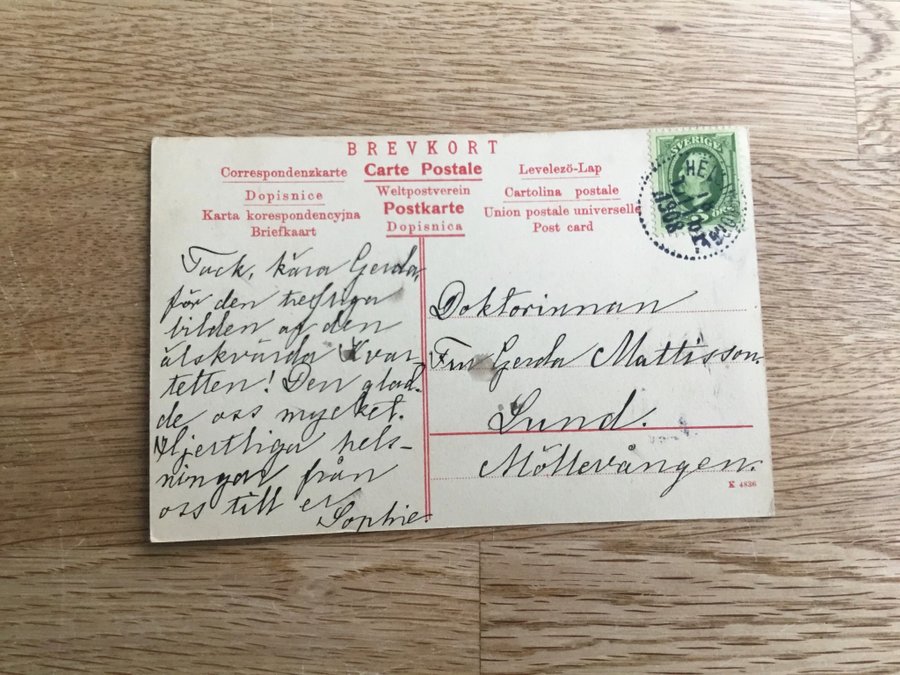 BREVKORT
Correspondenzkarte Carte Postale Levelező-Lap
Dopisnice Weltpostverein Cartolina postale
Karta korespondencyjna Postkarte Union postale universelle
Briefkaart Dopisnica Post card
SVERIGE
1908
Tack, kära Gerda,
för den treffliga
bilden af den
älskvärda Kvar-
tetten! Den glad-
de oss mycket.
Hjertliga hels-
ningar från
oss till er
Sophie.
Doktorinnan
Fru Gerda Mattisson.
Lund.
Möllevången.
K 4836